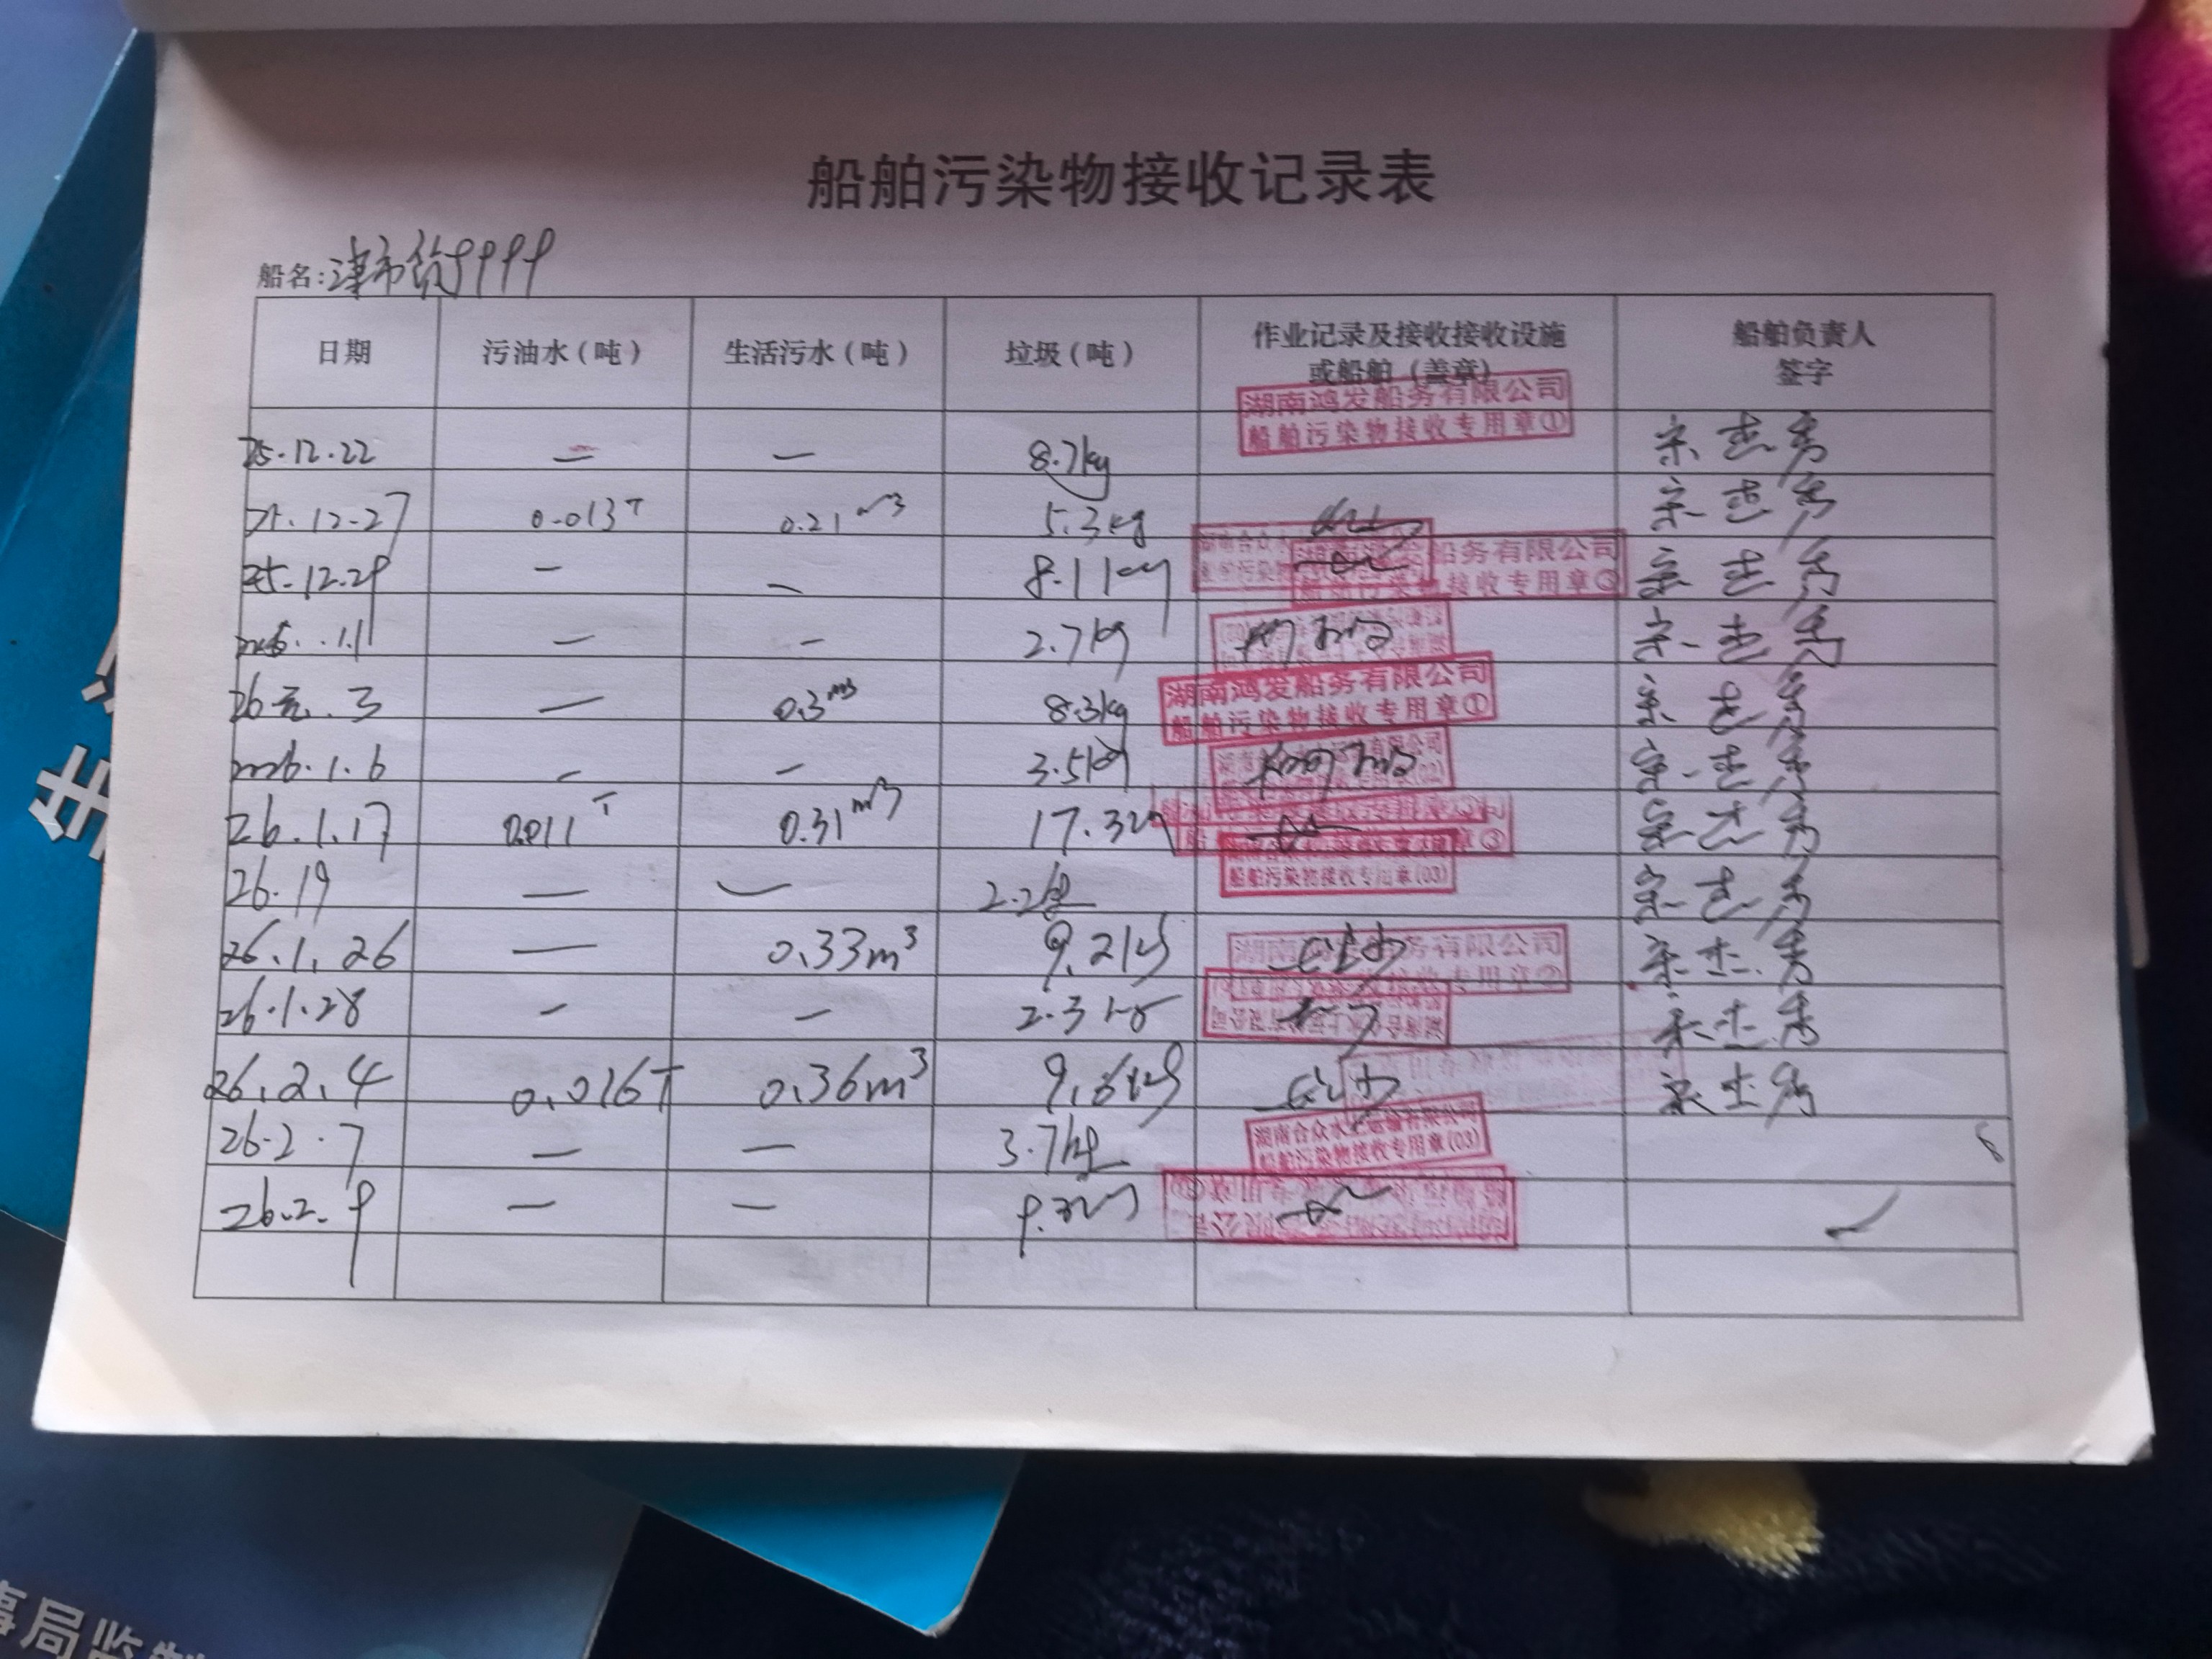 船舶污染物接收记录表
船名:津市货9999
日期 污油水(吨) 生活污水(吨) 垃圾(吨) 作业记录及接收接收设施或船舶(盖章) 船舶负责人签字
湖南鸿发船务有限公司
船舶污染物接收专用章①
25.12.22 — — 8.7kg 宋杰秀
25.12.27 0.013T 0.21m3 5.3kg 宋杰秀
湖南合众水
湖南鸿发船务有限公司
接收专用章③
25.12.29 — — 8.11kg 宋杰秀
2026.1.1 — — 2.7kg 宋杰秀
26元.3 — 0.3m3 8.3kg 宋杰秀
湖南鸿发船务有限公司
船舶污染物接收专用章①
2026.1.6 — — 3.5kg 宋杰秀
26.1.17 0.011T 0.31m3 17.3kg 宋杰秀
26.19 — — 2.2kg 宋杰秀
船舶污染物接收专用章(03)
26.1.26 — 0.33m3 9.2kg 宋杰秀
湖南 务有限公司
接收专用章②
26.1.28 — — 2.3kg 宋杰秀
26.2.4 0.016T 0.36m3 9.6kg 宋杰秀
26.2.7 — — 3.7kg
湖南合众水上运输有限公司
船舶污染物接收专用章(03)
26.2.9 — —
事局监制